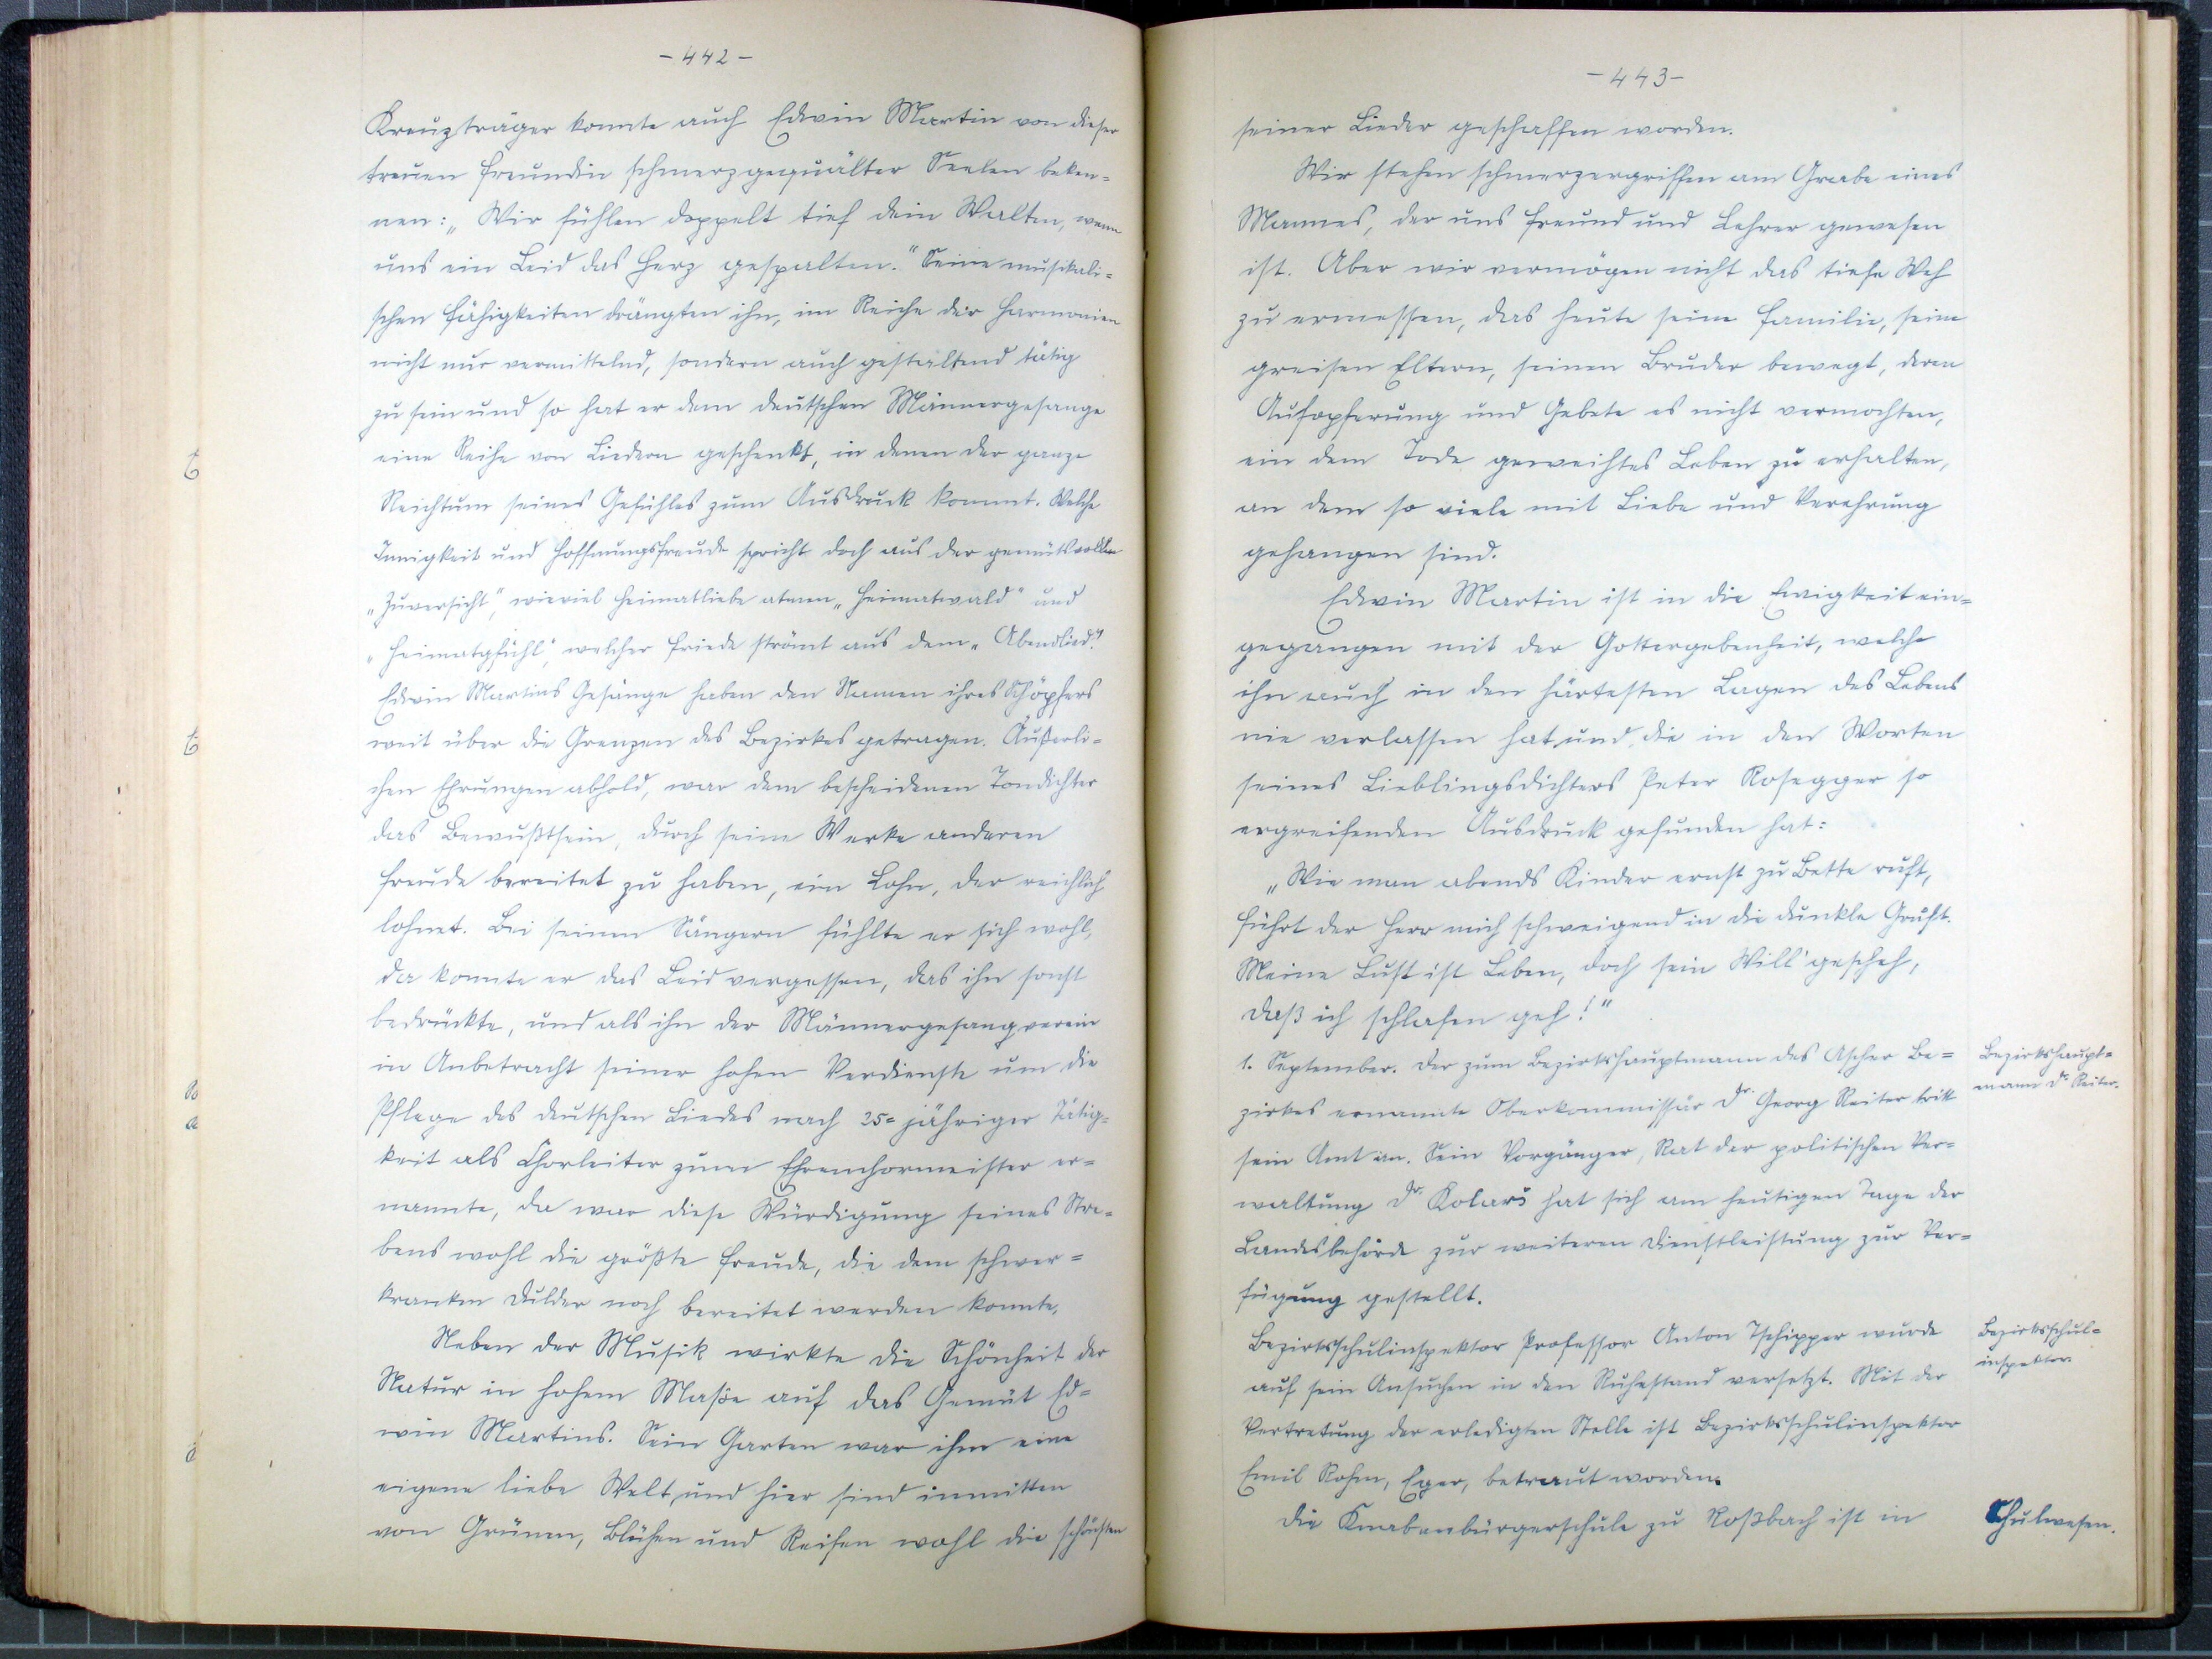 - 442 -
Kreuzträger konnte auch Edwin Martin von dieser
treuen Freundin schmerzgequälter Seelen beken=
nen: „Wir fühlen doppelt tief dein Walten, wenn
uns ein Leid das Herz gespalten." Seine musikali=
schen Fähigkeiten drängten ihn, im Reiche der Harmonien
nicht nur vermittelnd, sondern auch gestaltend tätig
zu sein und so hat er dem deutschen Männergesange
eine Reihe von Liedern geschenkt, in denen der ganze
Reichtum seines Gefühles zum Ausdruck kommt. Welche
Innigkeit und Hoffnungsfreude spricht doch aus der gemütvollen
„Zuversicht", wieviel Heimatliebe atmen „Heimatwald" und
„Heimatgfühl", welcher Friede strömt aus dem „Abendlied".
Edwin Martins Gesänge haben den Namen ihres Schöpfers
weit über die Grenzen des Bezirkes getragen. Äußerli=
chen Ehrungen abhold, war dem bescheidenen Tondichter
das Bewußtsein, durch seine Werke anderen
Freude bereitet zu haben, ein Lohn, der reichlich
lohnet. Bei seinen Sängern fühlte er sich wohl,
da konnte er das Leid vergessen, das ihn sonst
bedrückte, und als ihn der Männergesangverein
in Anbetracht seiner hohen Verdienste um die
Pflege des deutschen Liedes nach 25=jähriger Tätig=
keit als Chorleiter zum Ehrenchormeister er=
nannte, da war diese Würdigung seines Stre=
bens wohl die größte Freude, die dem schwer=
kranken Dulder noch bereitet werden konnte.
Neben der Musik wirkte die Schönheit der
Natur in hohem Maße auf das Gemüt Ed=
win Martins. Sein Garten war ihm eine
eigene liebe Welt, und hier sind inmitten
von Grünen, Blühen und Reifen wohl die schönsten
- 443 -
seiner Lieder geschaffen worden.
Wir stehen schmerzergriffen am Grabe eines
Mannes, der uns Freund und Lehrer gewesen
ist. Aber wir vermögen nicht das tiefe Weh
zu ermessen, das heute seine Familie, seine
greisen Eltern, seinen Bruder bewegt, deren
Aufopferung und Gebete es nicht vermochten,
ein dem Tode geweihtes Leben zu erhalten,
an dem so viele mit Liebe und Verehrung
gehangen sind.
Edwin Martin ist in die Ewigkeit ein=
gegangen mit der Gottergebenheit, welche
ihn auch in den härtesten Lagen des Lebens
nie verlassen hat und die in den Worten
seines Lieblingsdichters Peter Rosegger so
ergreifenden Ausdruck gefunden hat:
„Wie man abends Kinder ernst zu Bette ruft,
führt der Herr mich schweigend in die dunkle Gruft.
Meine Lust ist Leben, doch sein Will' gescheh,
daß ich schlafen geh!"
1. September. Der zum Bezirkshauptmann des Ascher Be=
zirkes ernannte Oberkommissär Dr. Georg Reiter tritt
sein Amt an. Sein Vorgänger, Rat der politischen Ver=
waltung Dr. Kolarš hat sich am heutigen Tage der
Landesbehörde zur weiteren Dienstleistung zur Ver=
fügung gestellt.
Bezirkshaupt=
mann Dr. Reiter.
Bezirksschulinspektor Professor Anton Tschipper wurde
auf sein Ansuchen in den Ruhestand versetzt. Mit der
Vertretung der erledigten Stelle ist Bezirksschulinspektor
Emil Rohm, Eger, betraut worden.
Bezirksschul=
inspektor.
Die Knabenbürgerschule zu Roßbach ist in
Schulwesen.